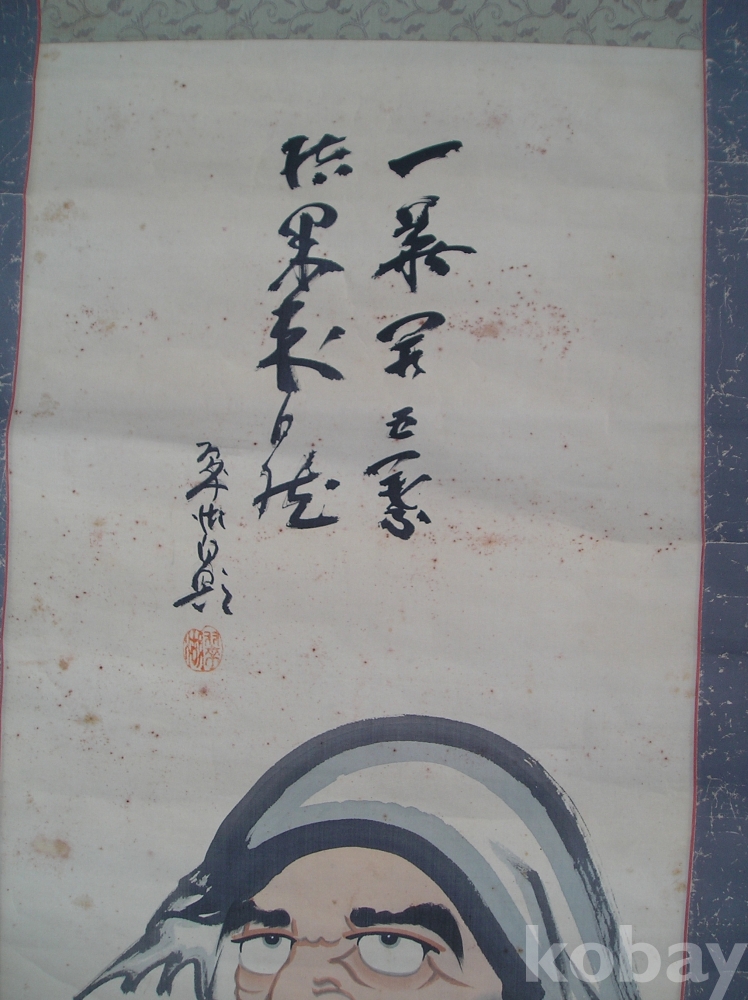 一華開五葉
結果自然
自題
kobay